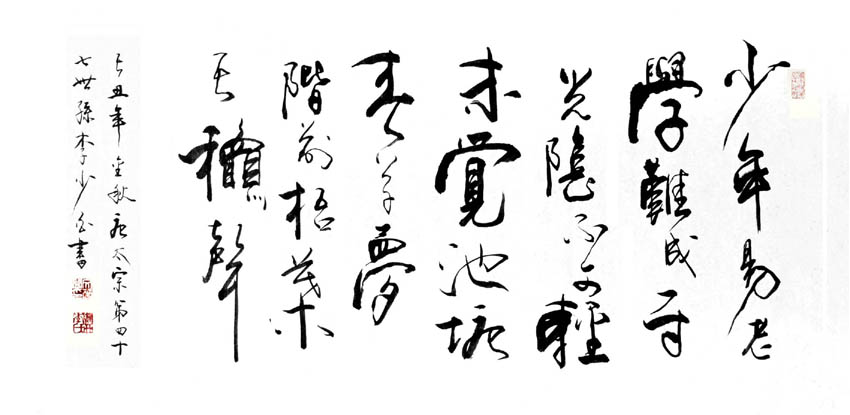 少年易老
學難成一寸
光陰不可輕
未覺池塘
春草夢
階前梧葉
已穐聲
己丑年金秋唐太宗第四十
七世孫李少白書